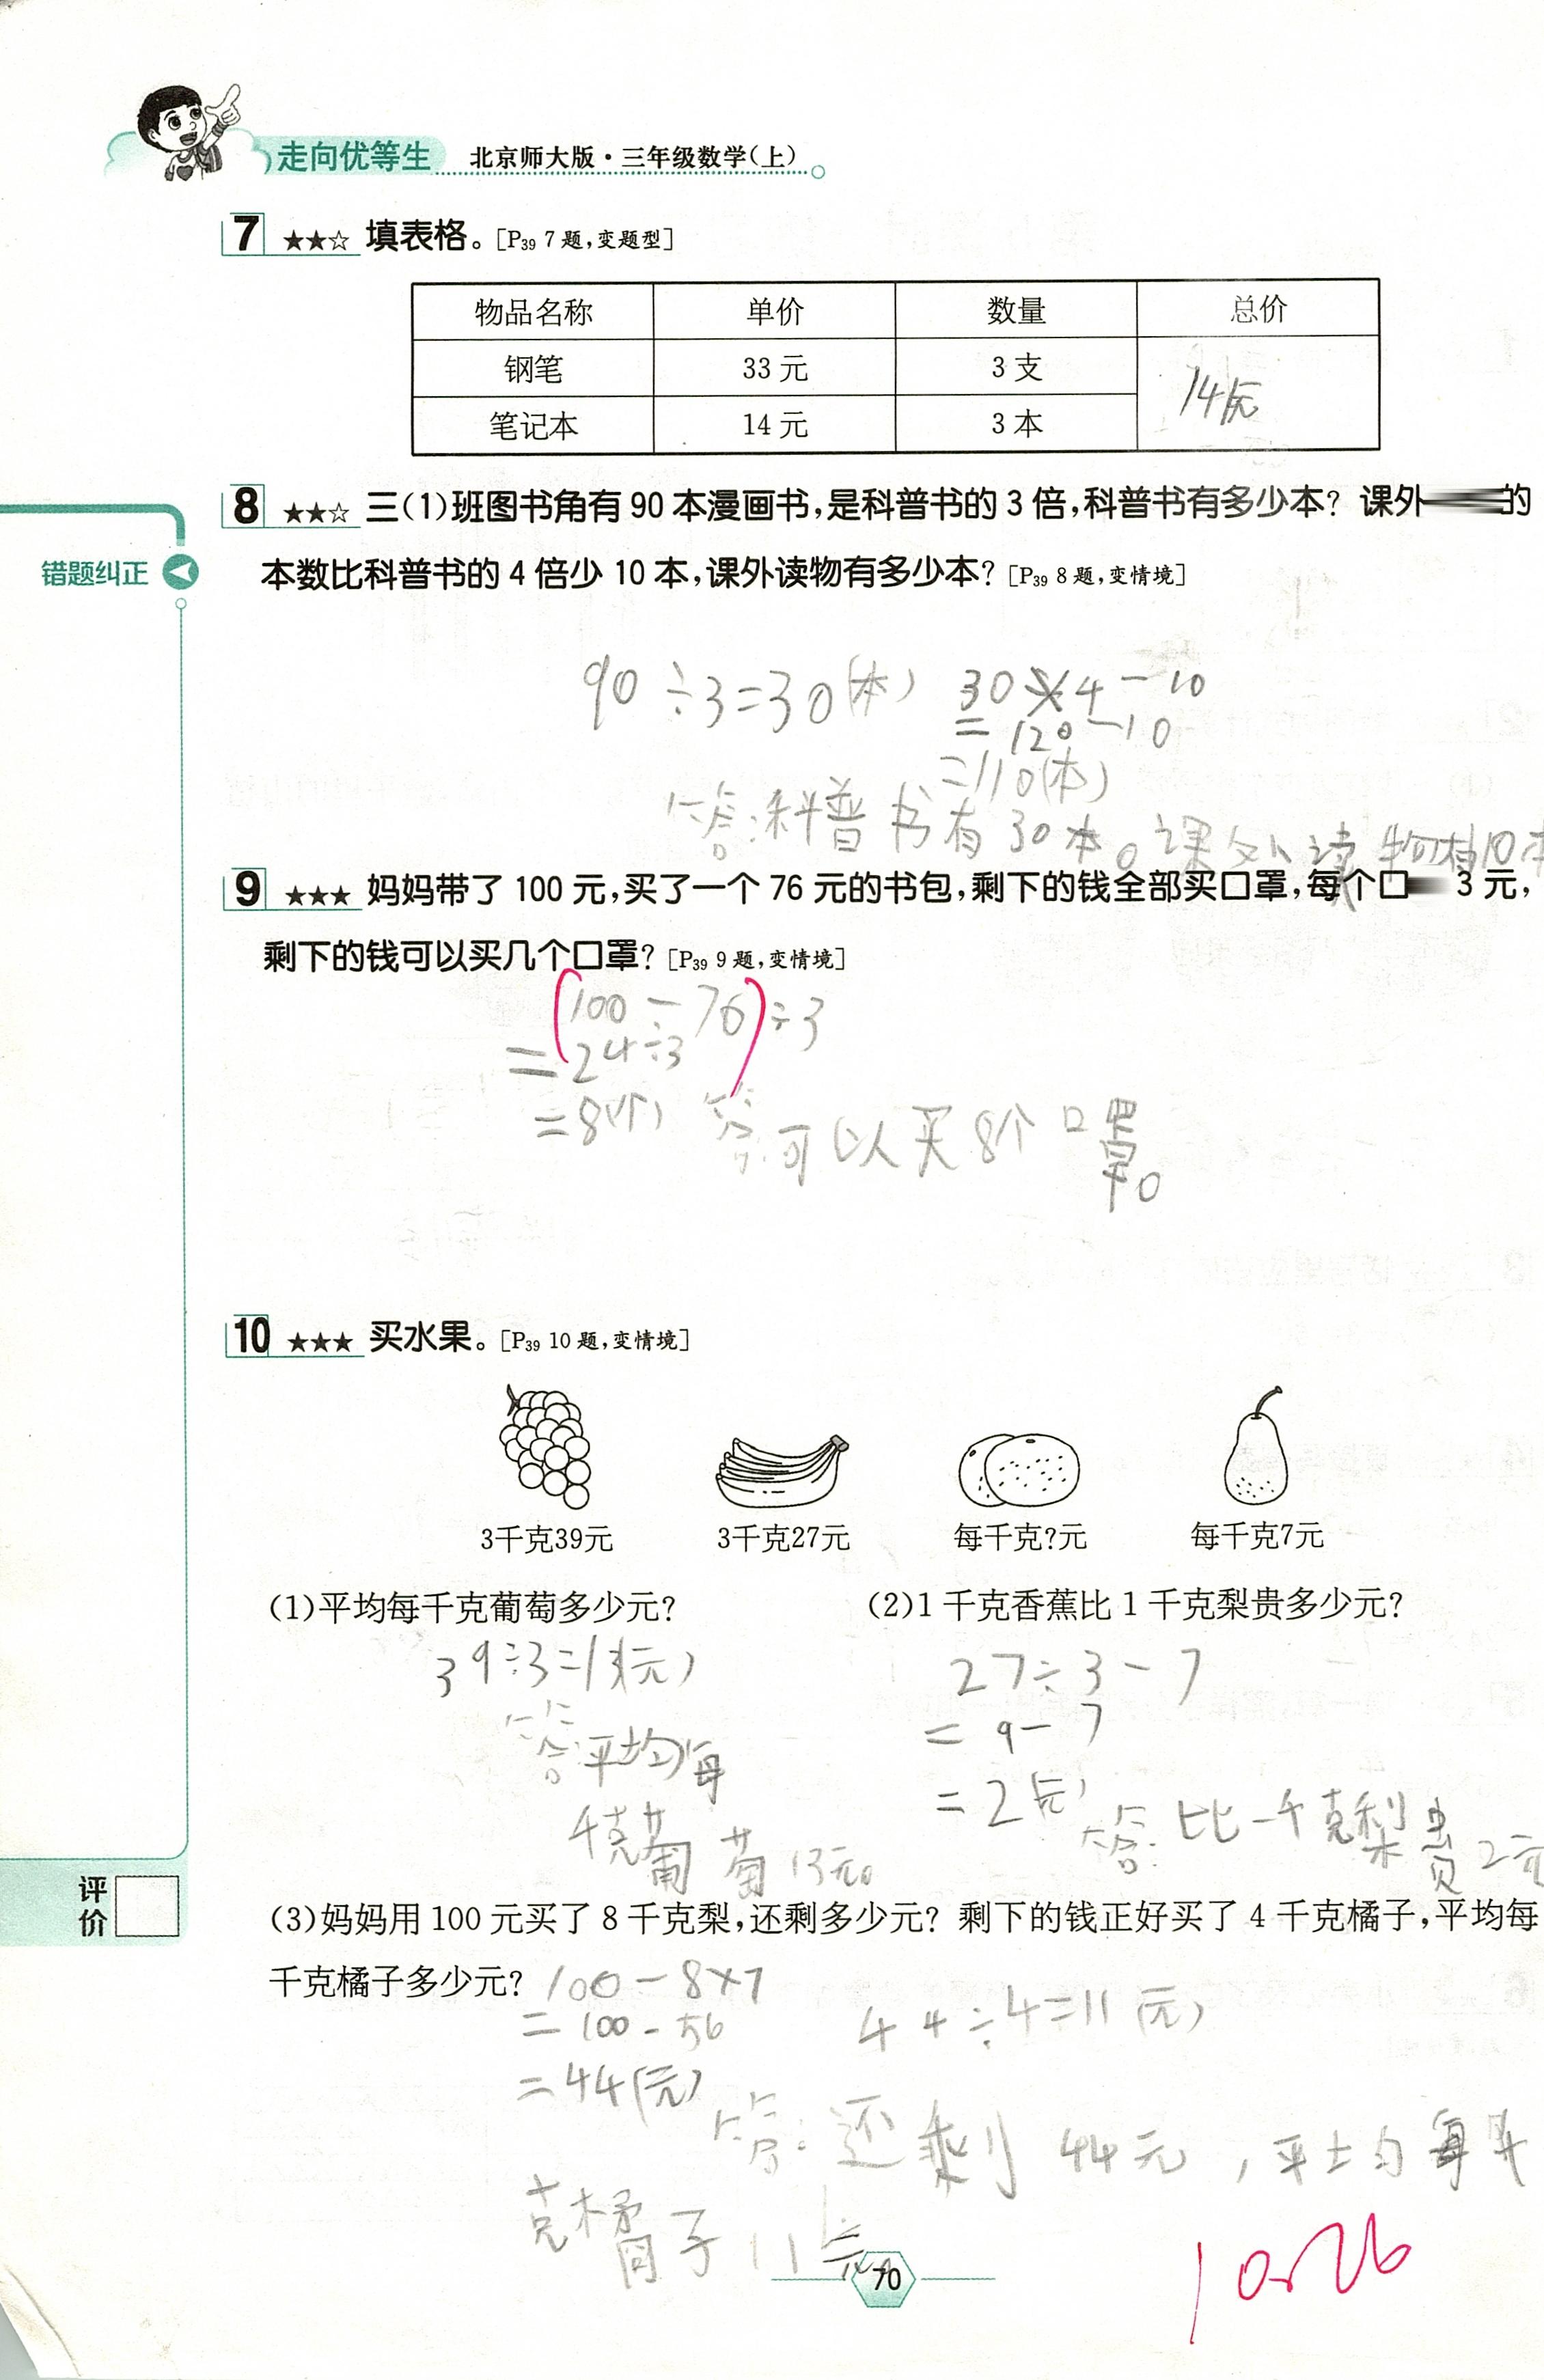 走向优等生 北京师大版·三年级数学(上)
7 ★★☆ 填表格。[P39 7题,变题型]
物品名称 单价 数量 总价
钢笔 33元 3支
笔记本 14元 3本
8 ★★☆ 三(1)班图书角有90本漫画书,是科普书的3倍,科普书有多少本? 课外 的
错题纠正
本数比科普书的4倍少10本,课外读物有多少本?[P39 8题,变情境]
90÷3=30(本) 30×4-10
=120-10
=110(本)
答:科普书有30本。课外读物有
9 ★★★ 妈妈带了100元,买了一个76元的书包,剩下的钱全部买口罩,每个口 3元,
剩下的钱可以买几个口罩?[P39 9题,变情境]
(100-76)÷3
=24÷3
=8(个) 答:可以买8个口罩。
10 ★★★ 买水果。[P39 10题,变情境]
3千克39元 3千克27元 每千克?元 每千克7元
(1)平均每千克葡萄多少元? (2)1千克香蕉比1千克梨贵多少元?
39÷3=13(元) 27÷3-7
=9-7
答:平均每
=2(元) 答:比一千克梨贵2元
千克葡萄13元。
评价
(3)妈妈用100元买了8千克梨,还剩多少元? 剩下的钱正好买了4千克橘子,平均每
千克橘子多少元? 100-8×7
=100-56 44÷4=11(元)
=44(元)
答:还剩44元,平均每千
克橘子11元。
70